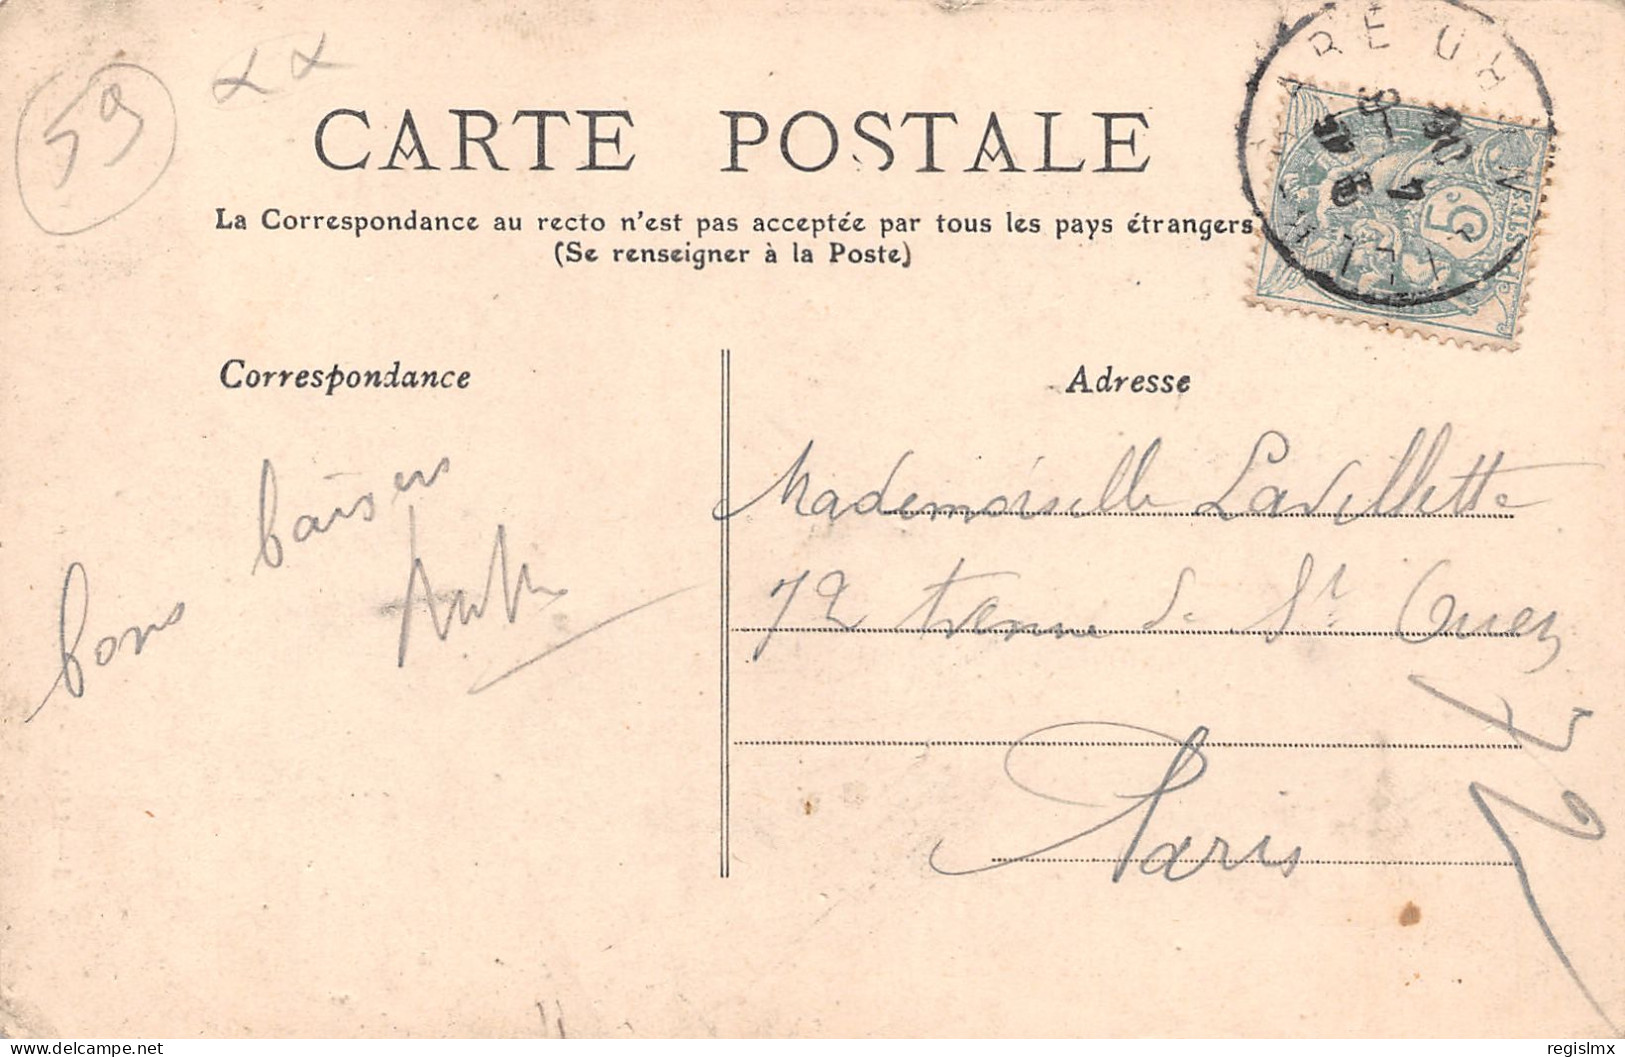 59
CARTE POSTALE
La Correspondance au recto n'est pas acceptée par tous les pays étrangers
(Se renseigner à la Poste)
5c
POSTES
Correspondance
Adresse
bons baisers
Mademoiselle Lavillette
72 Avenue de St Ouen
Paris
delcampe.net
regislmx